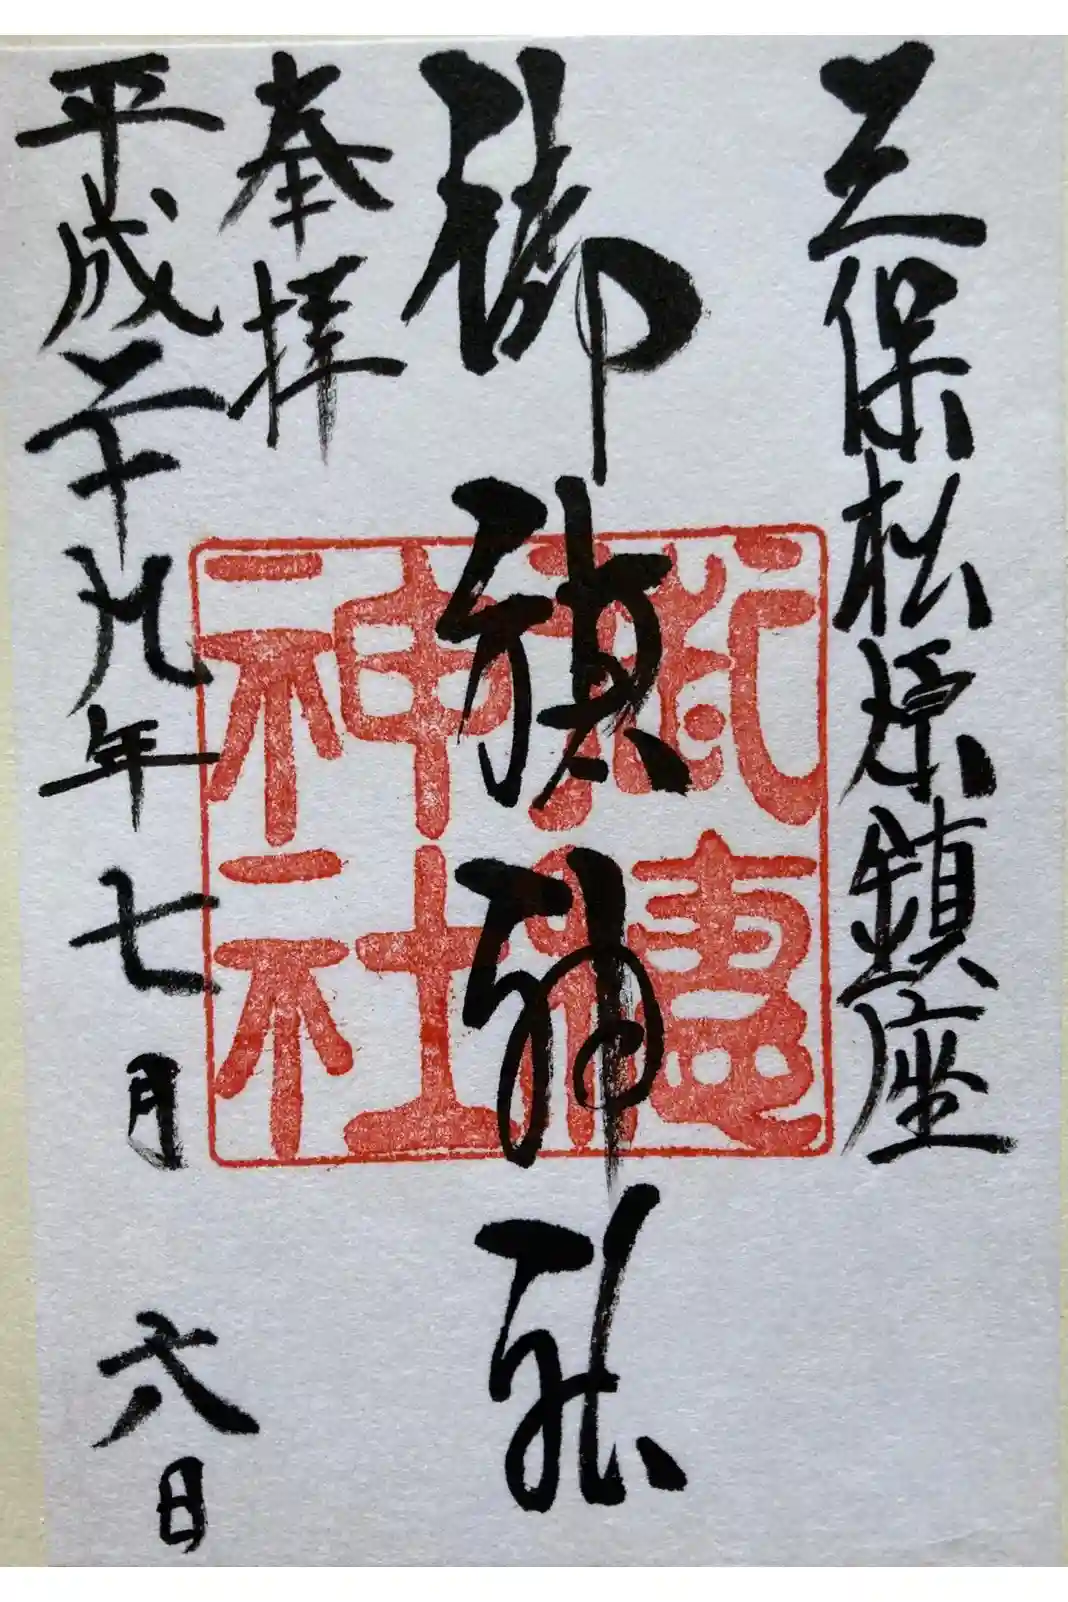 三保松原鎮座
御穂神社
奉拝
平成二十九年七月六日
御穗神社